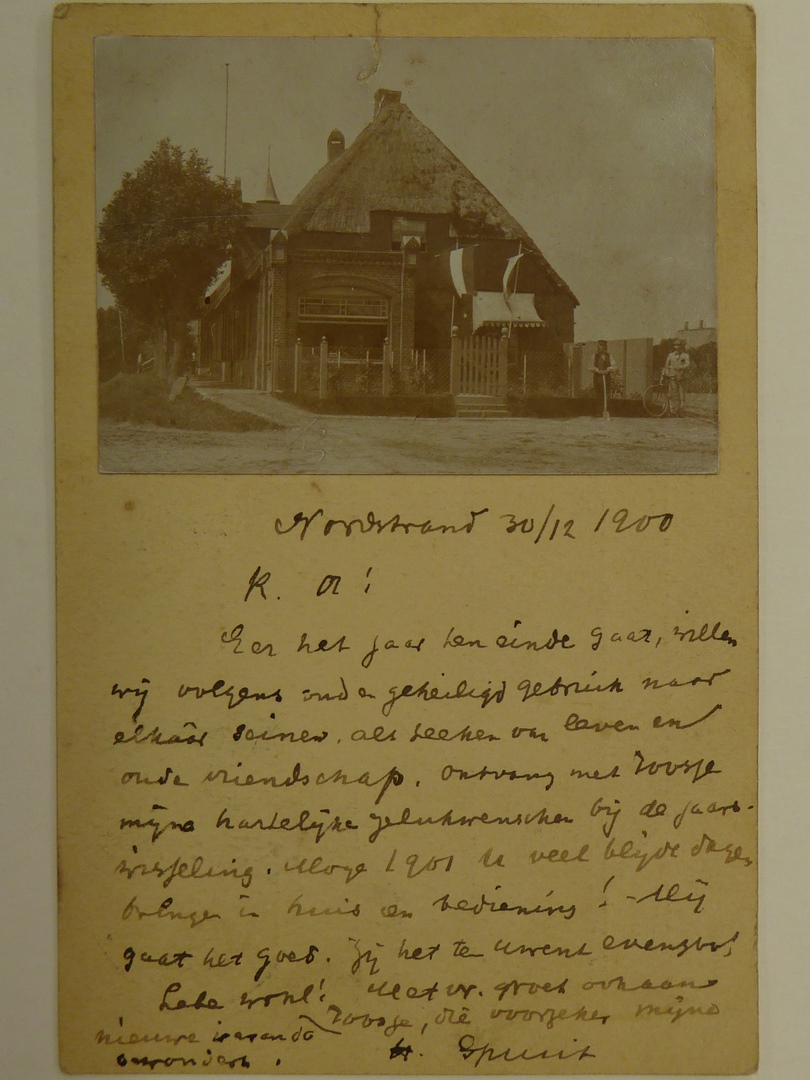 Nordstrand 30/12 1900
K. A!
Eer het jaar ten einde gaat, willen
wij volgens oud en geheiligd gebruik naar
elkaâr seinen, als teeken van leven en
oude vriendschap. Ontvang met Roosje
mijne hartelijke gelukwenschen bij de jaars-
wisseling. Moge 1901 U veel blijde dagen
brengen in huis en bediening! - Mij
gaat het goed. Zij het te Uwent evenzoo!
Lebe wohl! Met vr. groet ook aan
Roosje, die voorzeker mijne
nieuwe veranda
bewondert.
H. Spruit